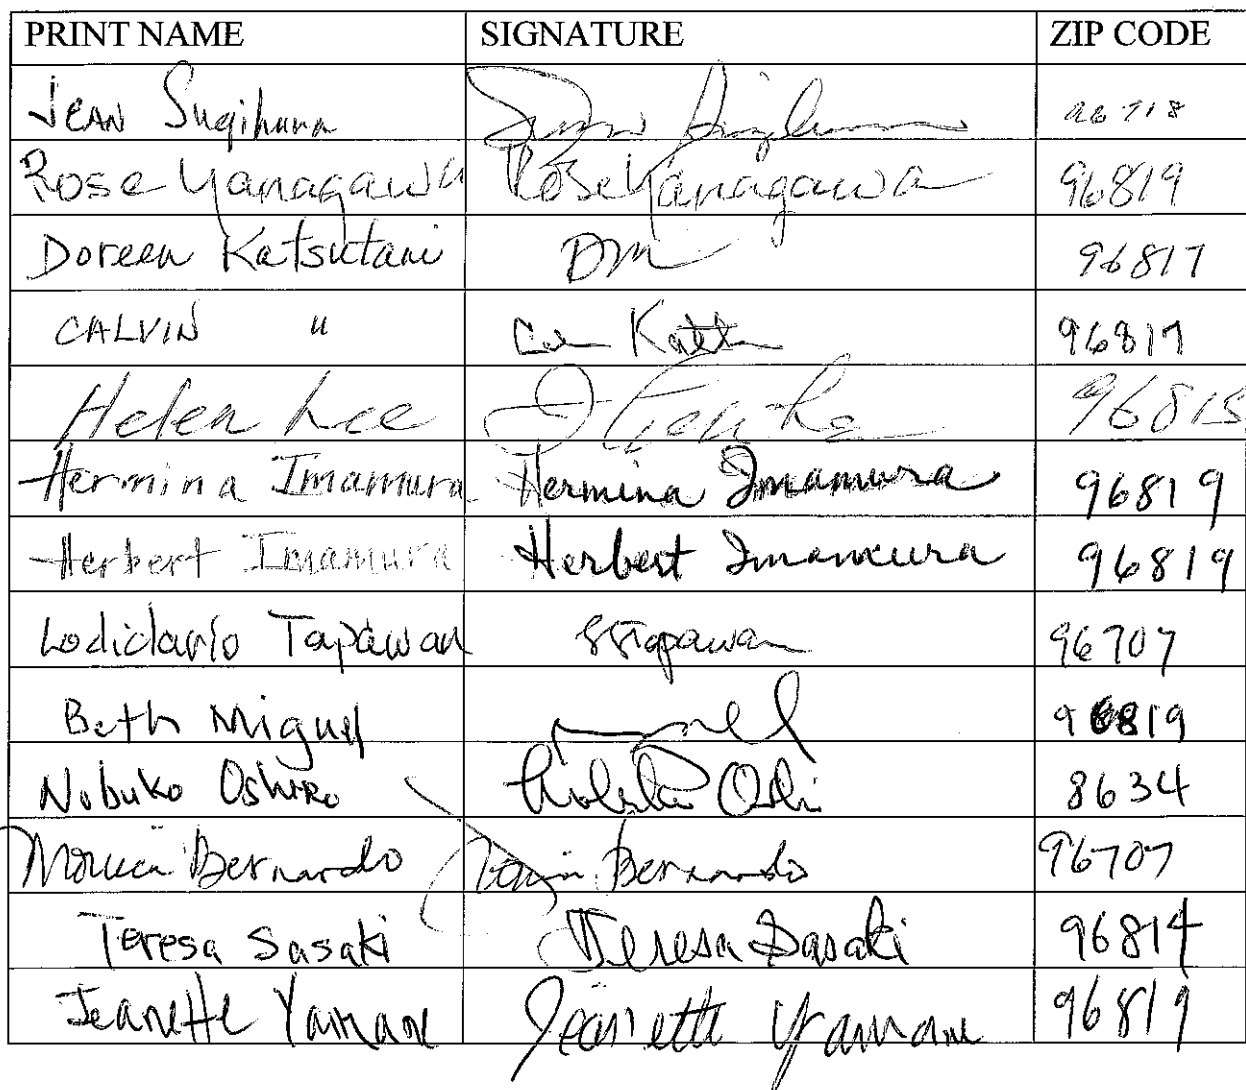 PRINT NAME SIGNATURE ZIP CODE
JEAN Sugihara 96718
Rose Yanagawa Rose Yanagawa 96819
Doreen Katsutani DM 96817
CALVIN " 96817
Helen Lee 96815
Hermina Imamura Hermina Imamura 96819
Herbert Imamura Herbert Imamura 96819
Tapawan 96707
Beth Miguel 96819
Nobuko Oshiro 8634
Bernardo Bernardo 96707
Teresa Sasaki Teresa Sasaki 96814
Jeanette Yamane Jeanette Yamane 96819